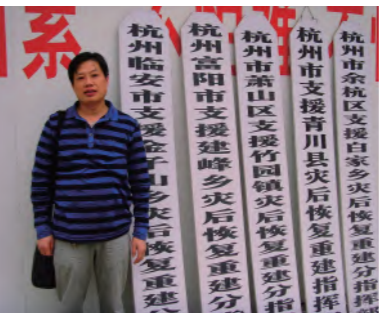 系
杭州临安市支援金子山乡灾后恢复重建
杭州富阳市支援建峰乡灾后恢复重建分
杭州市萧山区支援竹园镇灾后恢复重建分指
杭州市支援青川县灾后恢复重建指挥
杭州市余杭区支援白家乡灾后恢复重建分指挥